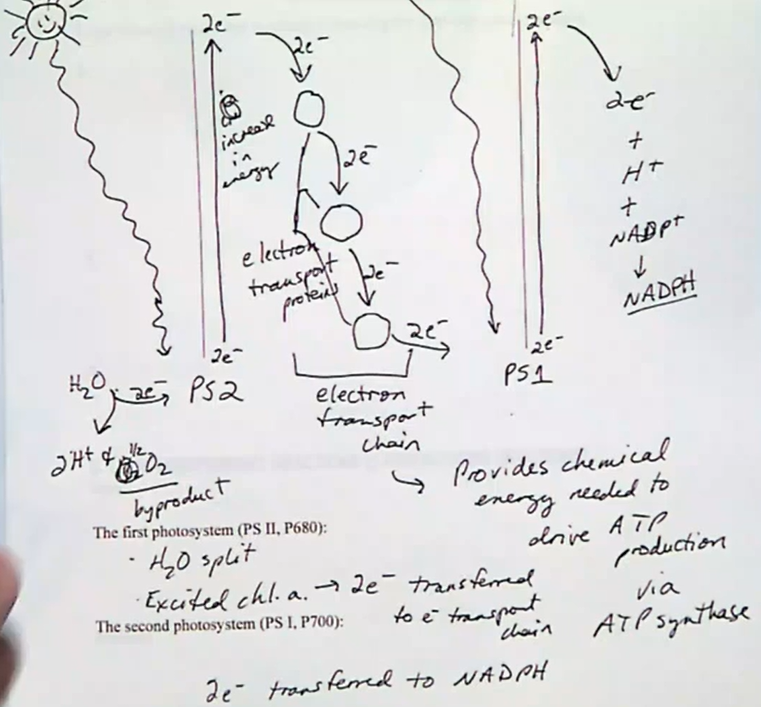 2e⁻
2e⁻
increase
in
energy
2e⁻
electron
transport
proteins
2e⁻
2e⁻
2e⁻
H₂O
2e⁻
PS2
2H⁺ & 1/2 O₂
byproduct
electron
transport
chain
2e⁻
2e⁻
PS1
2e⁻
+
H⁺
+
NADP⁺
↓
NADPH
→ Provides chemical
energy needed to
drive ATP
production
via
ATP synthase
The first photosystem (PS II, P680):
· H₂O split
· Excited chl. a. → 2e⁻ transferred
to e⁻ transport
chain
The second photosystem (PS I, P700):
2e⁻ transferred to NADPH